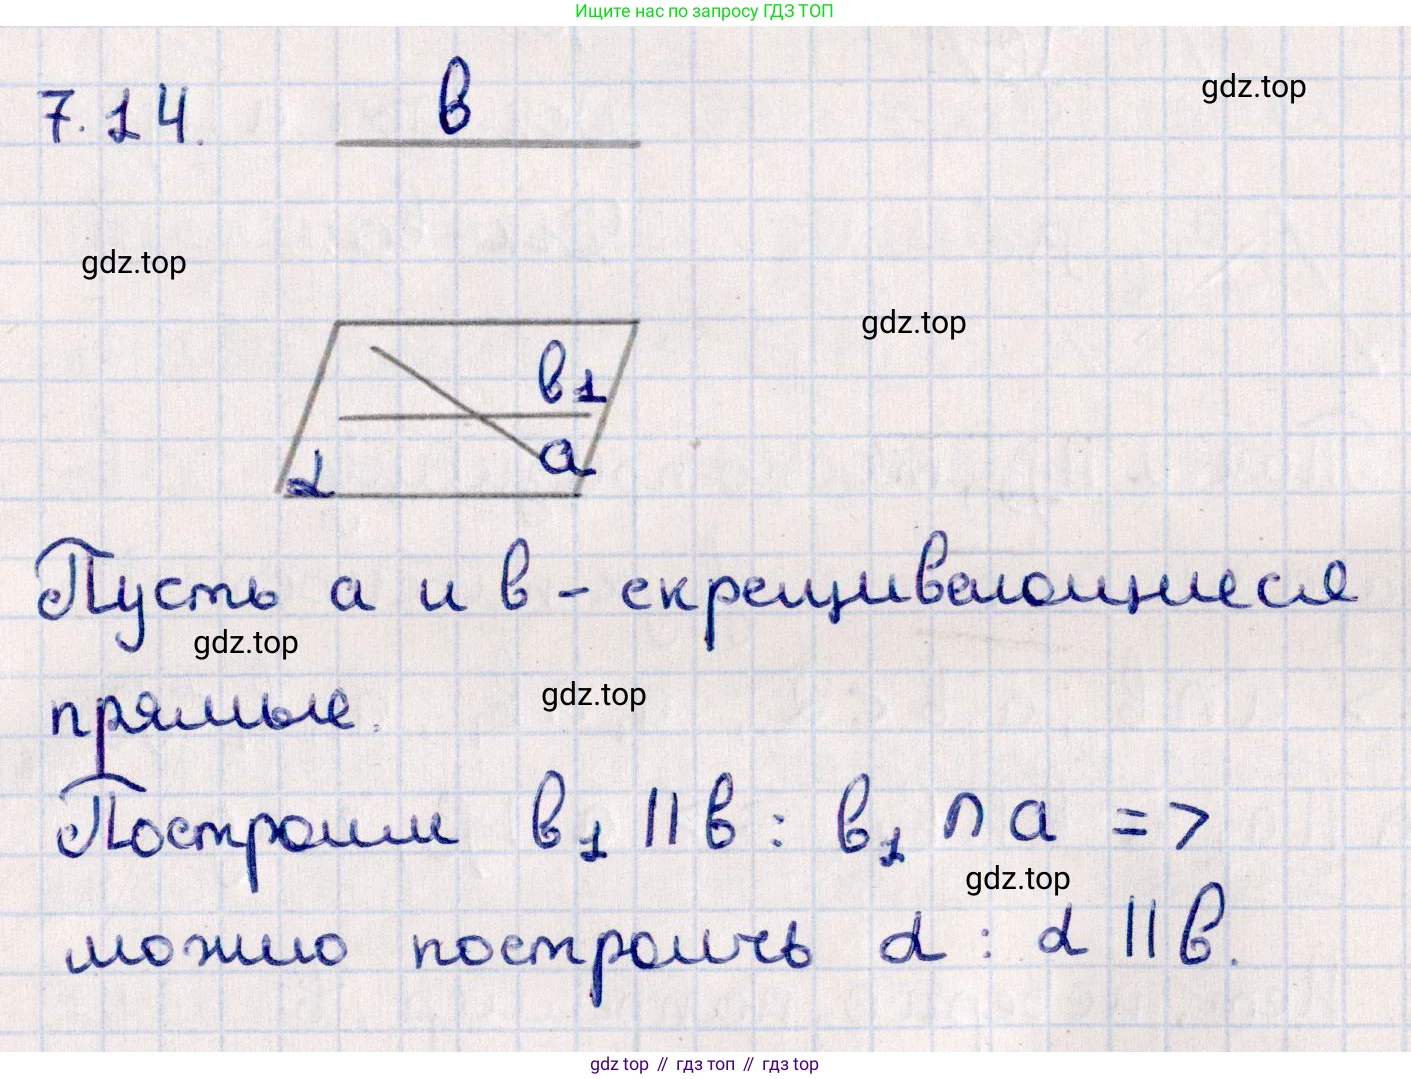 Ищите нас по запросу ГДЗ ТОП
7.14.
в
gdz.top
gdz.top
gdz.top
в1
a
α
Пусть a и в - скрещивающиеся
gdz.top
прямые.
gdz.top
Построим в1 || в : в1 ∩ a =>
gdz.top
можно построить α : α || в.
gdz top // гдз топ // гдз top